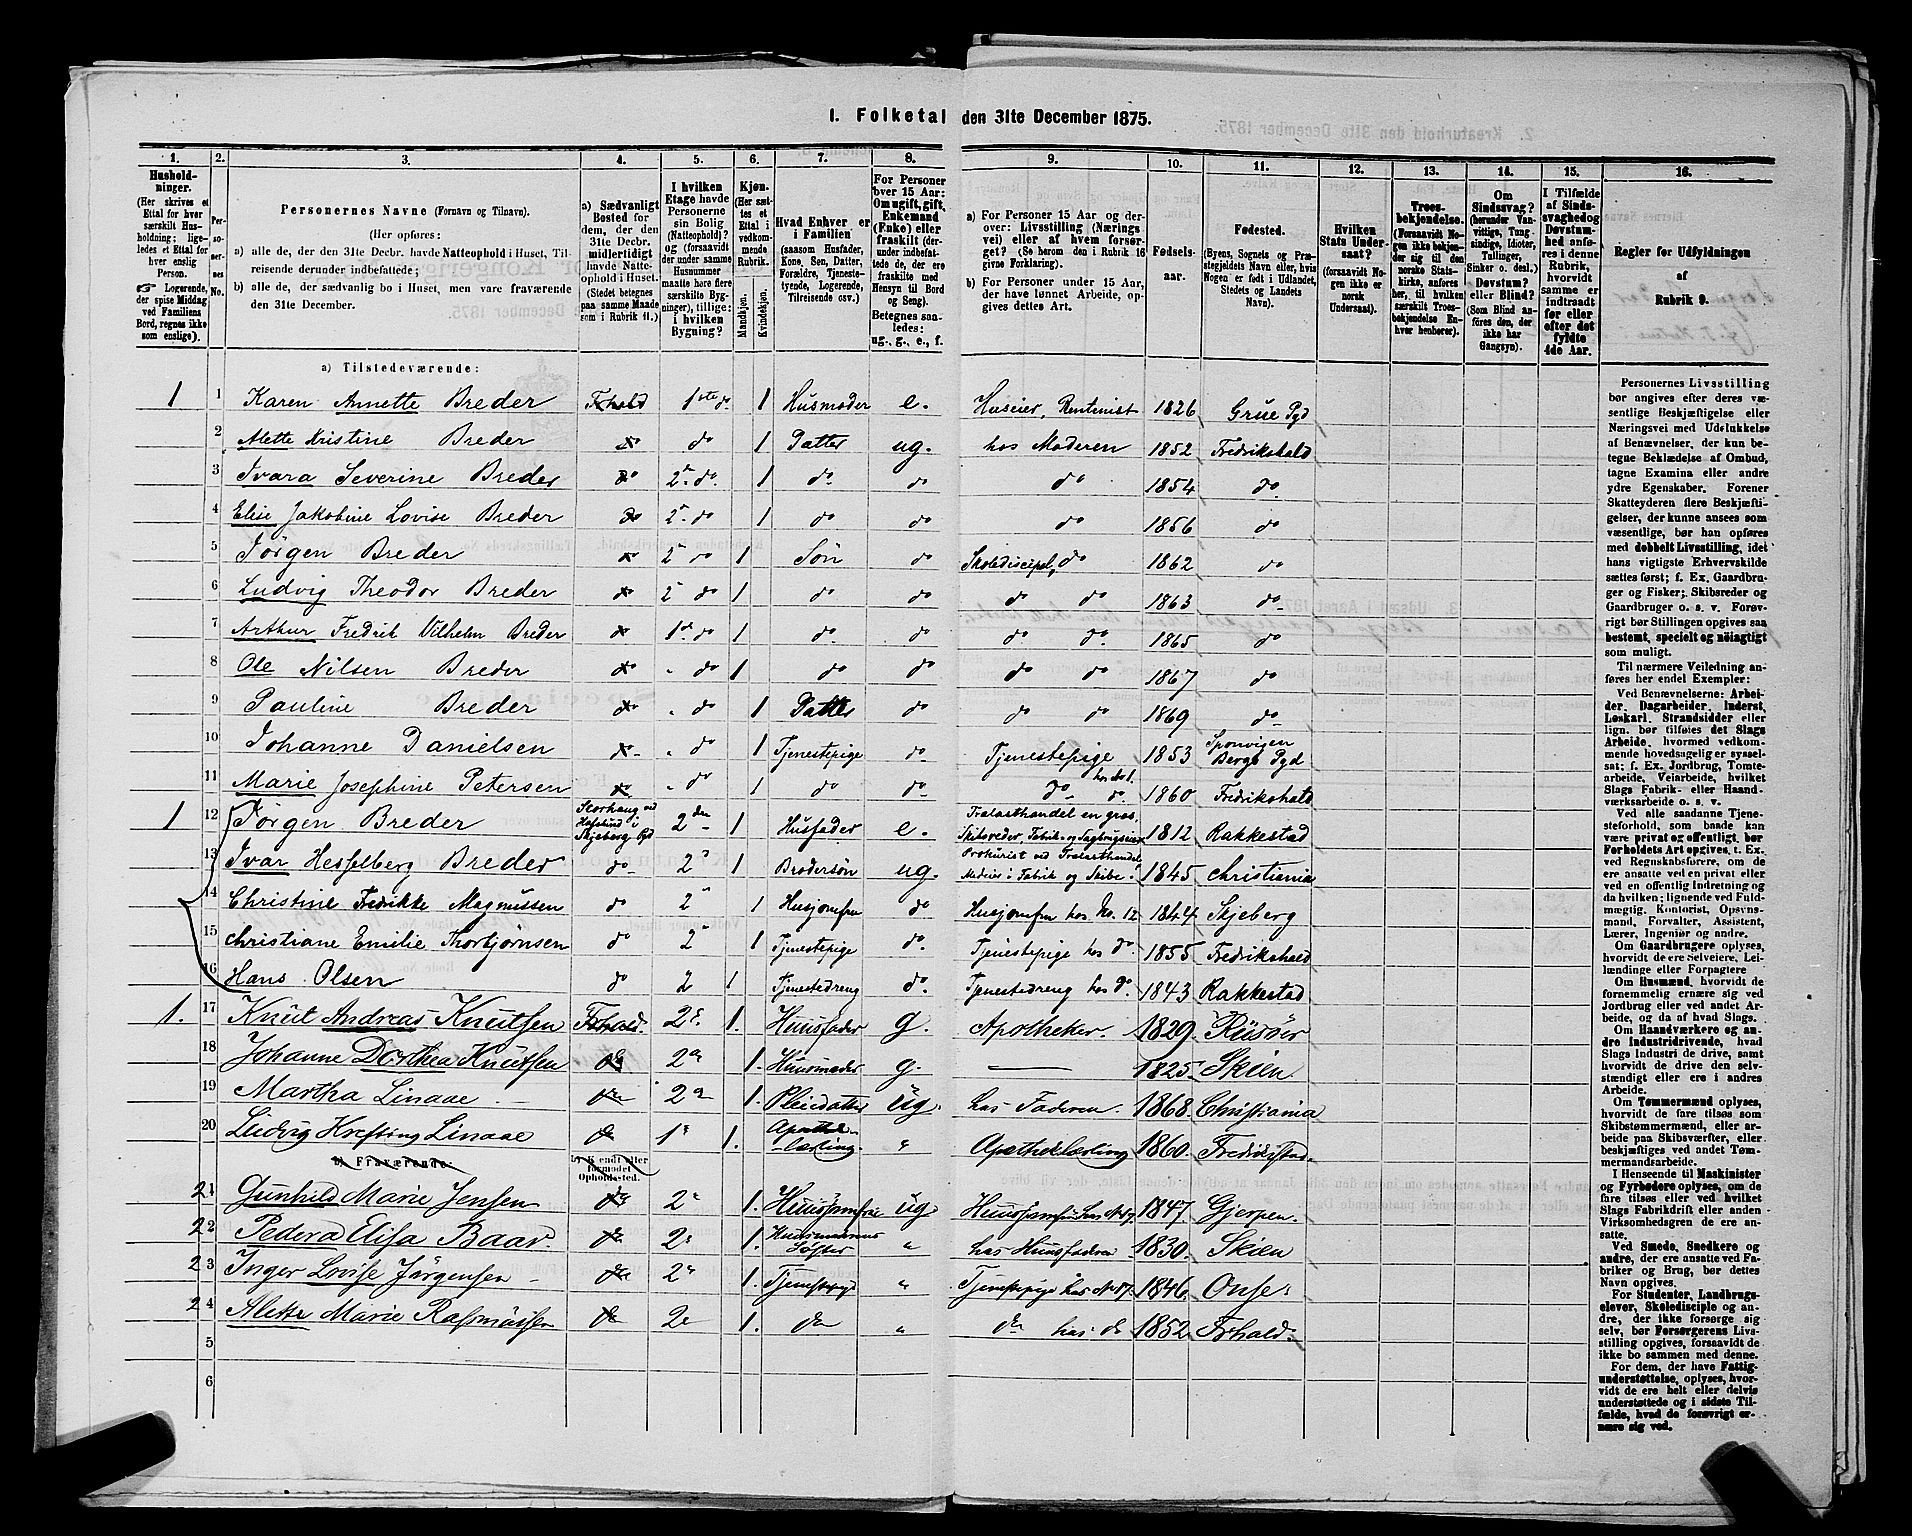 I. Folketal den 31te December 1875.
1. 2. 3. 4. 5. 6. 7. 8. 9. 10. 11. 12. 13. 14. 15. 16.
Husholdninger. (Her skrives et Ettal for hver særskilt Husholdning; ligeledes et Ettal for hver enslig Person. Logerende, der spise Middag ved Familiens Bord, regnes ikke som enslige).
Personernes No.
Personernes Navne (Fornavn og Tilnavn).
(Her opføres:
a) alle de, der den 31te Decbr. havde Natteophold i Huset, Tilreisende derunder indbefattede;
b) alle de, der sædvanlig bo i Huset, men vare fraværende den 31te December.
a) Sædvanligt Bosted for dem, der den 31te Decbr. midlertidigt havde Natteophold i Huset. (Stedet betegnes paa samme Maade som i Rubrik 11.)
I hvilken Etage havde Personerne sin Bolig (Natteophold)? og (forsaavidt der under samme Husnummer maatte høre flere særskilte Bygninger), tillige: i hvilken Bygning?
Kjøn. (Her sættes et Ettal i vedkommende Rubrik. Mandkjøn. Kvindekjøn.
Hvad Enhver er i Familien (saasom Husfader, Kone, Søn, Datter, Forældre, Tjenestetyende, Logerende, Tilreisende osv.)
For Personer over 15 Aar: Om ugift, gift, Enkemand (Enke) eller fraskilt (derunder indbefattede de, der ere fraskilte med Hensyn til Bord og Seng). Betegnes saaledes: ug., g., e., f.
a) For Personer 15 Aar og derover: Livsstilling (Næringsvei) eller af hvem forsørget? (Se herom den i Rubrik 16 givne Forklaring).
b) For Personer under 15 Aar, der have lønnet Arbeide, opgives dettes Art.
Fødselsaar.
Fødested. (Byens, Sognets og Præstegjeldets Navn eller, hvis Nogen er født i Udlandet, Stedets og Landets Navn).
Hvilken Stats Undersaat? (forsaavidt Nogen ikke er norsk Undersaat).
Troesbekjendelse. (Forsaavidt Nogen ikke bekjender sig til den norske Statskirke, anføres her, til hvilken særskilt Troesbekjendelse Enhver henhører).
Om Sindssvag? (herunder Vanvittige, Tungsindige, Idioter, Tullinger, Sinker o. desl.) Døvstum? eller Blind? (Som Blind anføres den, der ikke har Gangsyn).
I Tilfælde af Sindssvaghed og Døvstumhed anføres i denne Rubrik, hvorvidt samme er indtraadt før eller efter det fyldte 4de Aar.
Regler for Udfyldningen af Rubrik 9.
a) Tilstedeværende:
1 1 Karen Annette Breder F.hald 1ste do. 1 Husmoder e. Huseier, Rentenist 1826 Grue Pgd
2 Alette Kristine Breder do do 1 Datter ug. hos Moderen 1852 Fredrikshald
3 Ivara Severine Breder do 2" do 1 do do do 1854 do
4 Elise Jakobine Lovise Breder do 2" do 1 do do do 1856 do
5 Jørgen Breder do 2" do 1 Søn do Skolediscipel, do 1862 do
6 Ludvig Theodor Breder do 2" do 1 do. do do do 1863 do
7 Arthur Fredrik Vilhelm Breder do 1" do 1 do. do do do. 1865 do
8 Ole Nilsen Breder do " do 1 do do do do 1867 do
9 Pauline Breder do " do 1 Datter do do do 1869 do
10 Johanne Danielsen do " do 1 Tjenestepige do Tjenestepige 1853 Sponvigen Bergs Pgd
11 Marie Josephine Petersen do " do 1 do do do hos No 1. do. 1860 Fredrikshald
1 12 Jørgen Breder Storhaug ved Hafslund i Skjeberg Pgd 2den 1 Husfader e. Trælasthandel en gros, Skibsreder, Fabrik- og Sagbrugseier 1812 Rakkestad
13 Ivar Hesselberg Breder do 2" 1 Brodersøn ug. Prokurist ved Trælasthandel, Medeier i Fabrik og Skibe 1845 Christiania
14 Christine Fredrikke Magnussen do 2" 1 Husjomfru do Husjomfru hos No. 12 1844 Skjeberg
15 Christiane Emilie Thorbjørnsen do 2" 1 Tjenestepige do. Tjenestepige hos do. 1855 Fredrikshald
16 Hans Olsen do 2 1 Tjenestedreng do. Tjenestedreng hos do. 1843 Rakkestad
1. 17 Knut Andreas Knutsen Frhald. 2e. 1. Huusfader g. Apotheker. 1829. Risøør
18 Johanne Dorthea Knutsen do 2e 1. Huusmoder g. — 1825. Skien
19 Martha Linaae do 2e 1. Pleiedatter ug. hos Faderen. 1868. Christiania
20 Ludvig Krefting Linaae do 1e 1. Apothek-lærling. " Apotheklærling 1860. Fredrikstad.
b) Fraværende: b) Kjendt eller formodet Opholdssted.
21 Gunhild Marie Jensen do 2e 1. Huusjomfru ug Huusjomfru hos No 17. 1847. Gjerpen.
22 Pedera Elisa Baar. do 2e 1. Huusmoderens Søster " hos Huusfaderen 1830. Skien
23 Inger Lovise Jørgensen do 2e 1. Tjenestepige " Tjenestepige hos No 17. 1846. Onsø
24 Alette Marie Rasmussen do 2e 1. do " do hos do 1852. Frhald.
5
6
Personernes Livsstilling bør angives efter deres væsentlige Beskjæftigelse eller Næringsvei med Udelukkelse af Benævnelser, der kun betegne Beklædelse af Ombud, tagne Examina eller andre ydre Egenskaber. Forener Skatteyderen flere Beskjæftigelser, der kunne ansees som væsentlige, bør han opføres med dobbelt Livsstilling, idet hans vigtigste Erhvervskilde sættes først; f. Ex. Gaardbruger og Fisker; Skibsreder og Gaardbruger o. s. v. Forøvrigt bør Stillingen opgives saa bestemt, specielt og nøiagtigt som muligt.
Til nærmere Veiledning anføres her endel Exempler:
Ved Benævnelserne: Arbeider, Dagarbeider, Inderst, Løskarl, Strandsidder eller lign. bør tilføies det Slags Arbeide, hvormed vedkommende hovedsagelig er sysselsat; f. Ex. Jordbrug, Tomtearbeide, Veiarbeide, hvilket Slags Fabrik- eller Haandværksarbeide o. s. v.
Ved alle saadanne Tjenesteforhold, som baade kan være privat og offentligt, bør Forholdets Art opgives, t. Ex. ved Regnskabsførere, om de ere ansatte ved en privat eller ved en offentlig Indretning og da hvilken; lignende ved Fuldmægtig, Kontorist, Opsynsmand, Forvalter, Assistent, Lærer, Ingeniør og andre.
Om Gaardbrugere oplyses, hvorvidt de ere Selveiere, Leilændinge eller Forpagtere
Om Husmænd, hvorvidt de fornemmelig ernære sig ved Jordbrug eller ved andet Arbeide, og da af hvad Slags.
Om Haandværkere og andre Industridrivende, hvad Slags Industri de drive, samt hvorvidt de drive den selvstændigt eller ere i andres Arbeide.
Om Tømmermænd oplyses, hvorvidt de fare tilsøs som Skibstømmermænd, eller arbeide paa Skibsværfter, eller beskjæftiges ved andet Tømmermandsarbeide.
I Henseende til Maskinister og Fyrbødere oplyses, om de fare tilsøs eller ved hvilket Slags Fabrikdrift eller anden Virksomhedsgren de ere ansatte.
Ved Smede, Snedkere og andre, der ere ansatte ved Fabriker og Brug, bør dettes Navn opgives.
For Studenter, Landbrugselever, Skoledisciple og andre, der ikke forsørge sig selv, bør Forsørgerens Livsstilling opgives, forsaavidt de ikke bo sammen med denne.
For dem, der have Fattigunderstøttelse, oplyses, hvorvidt de ere helt eller delvis understøttede og i sidste Tilfælde, hvad de forøvrigt ernære sig ved.